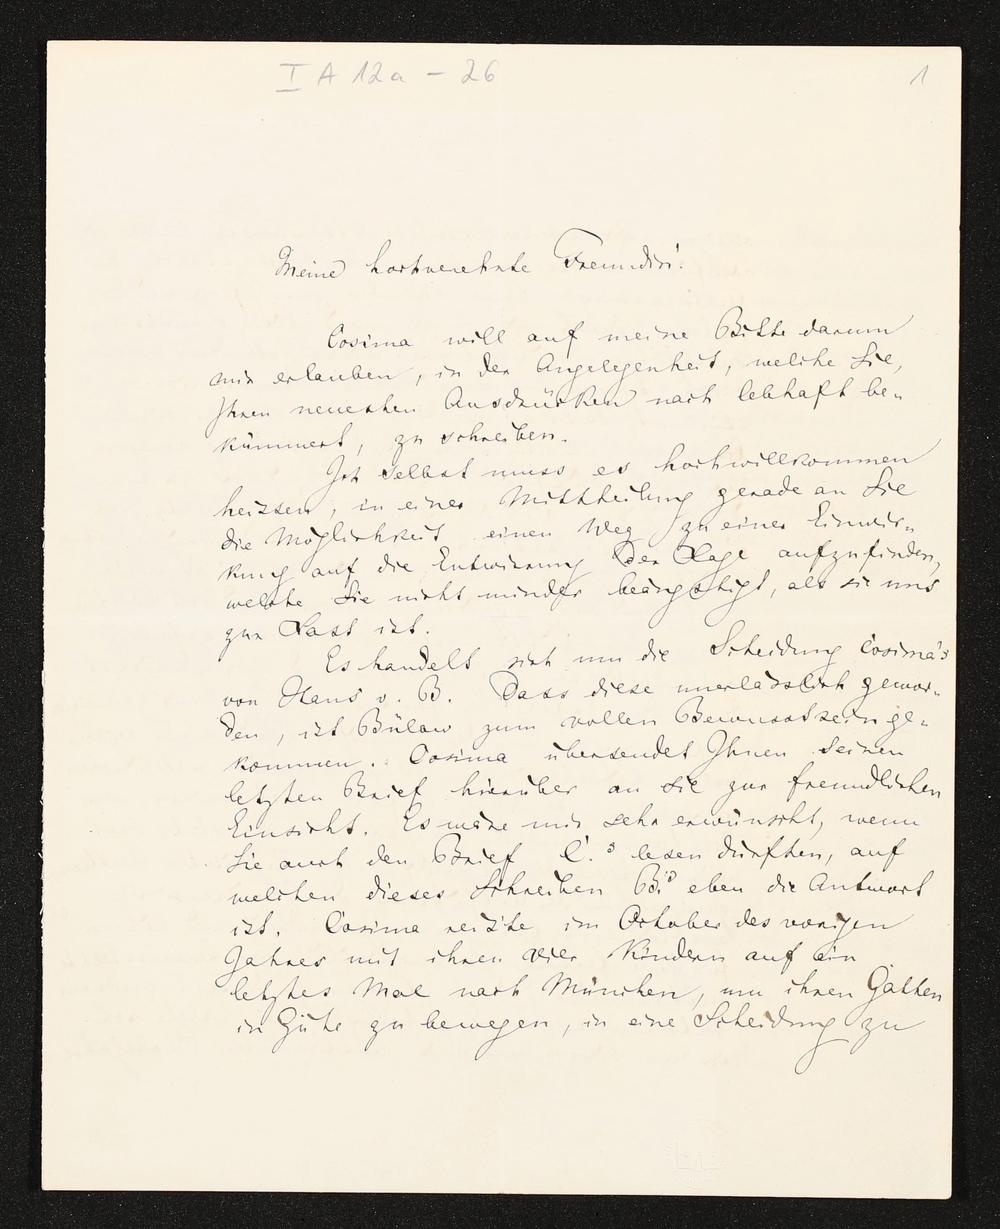 I A 12a – 26
1
Meine hochverehrte Freundin!
Cosima will auf meine Bitte darum
mir erlauben, in der Angelegenheit, welche Sie,
Ihren neuesten Ausdrücken nach lebhaft be-
kümmert, zu schreiben.
Ich selbst muss es hochwillkommen
heissen, in einer Mittheilung gerade an Sie
die Möglichkeit einen Weg zu einer Einwir-
kung auf die Entwirrung der Lage aufzufinden,
welche Sie nicht minder beängstigt, als sie uns
zur Last ist.
Es handelt sich um die Scheidung Cosima's
von Hans v. B. Dass diese unerlässlich gewor-
den, ist Bülow zum vollen Bewusstsein ge-
kommen. Cosima übersendet Ihnen seinen
letzten Brief hierüber an sie zur freundlichen
Einsicht. Es wäre mir sehr erwünscht, wenn
Sie auch den Brief C.'s lesen dürften, auf
welchen dieses Schreiben B's eben die Antwort
ist. Cosima reis'te im October des vorigen
Jahres mit ihren vier Kindern auf ein
letztes Mal nach München, um ihren Gatten
in Güte zu bewegen, in eine Scheidung zu